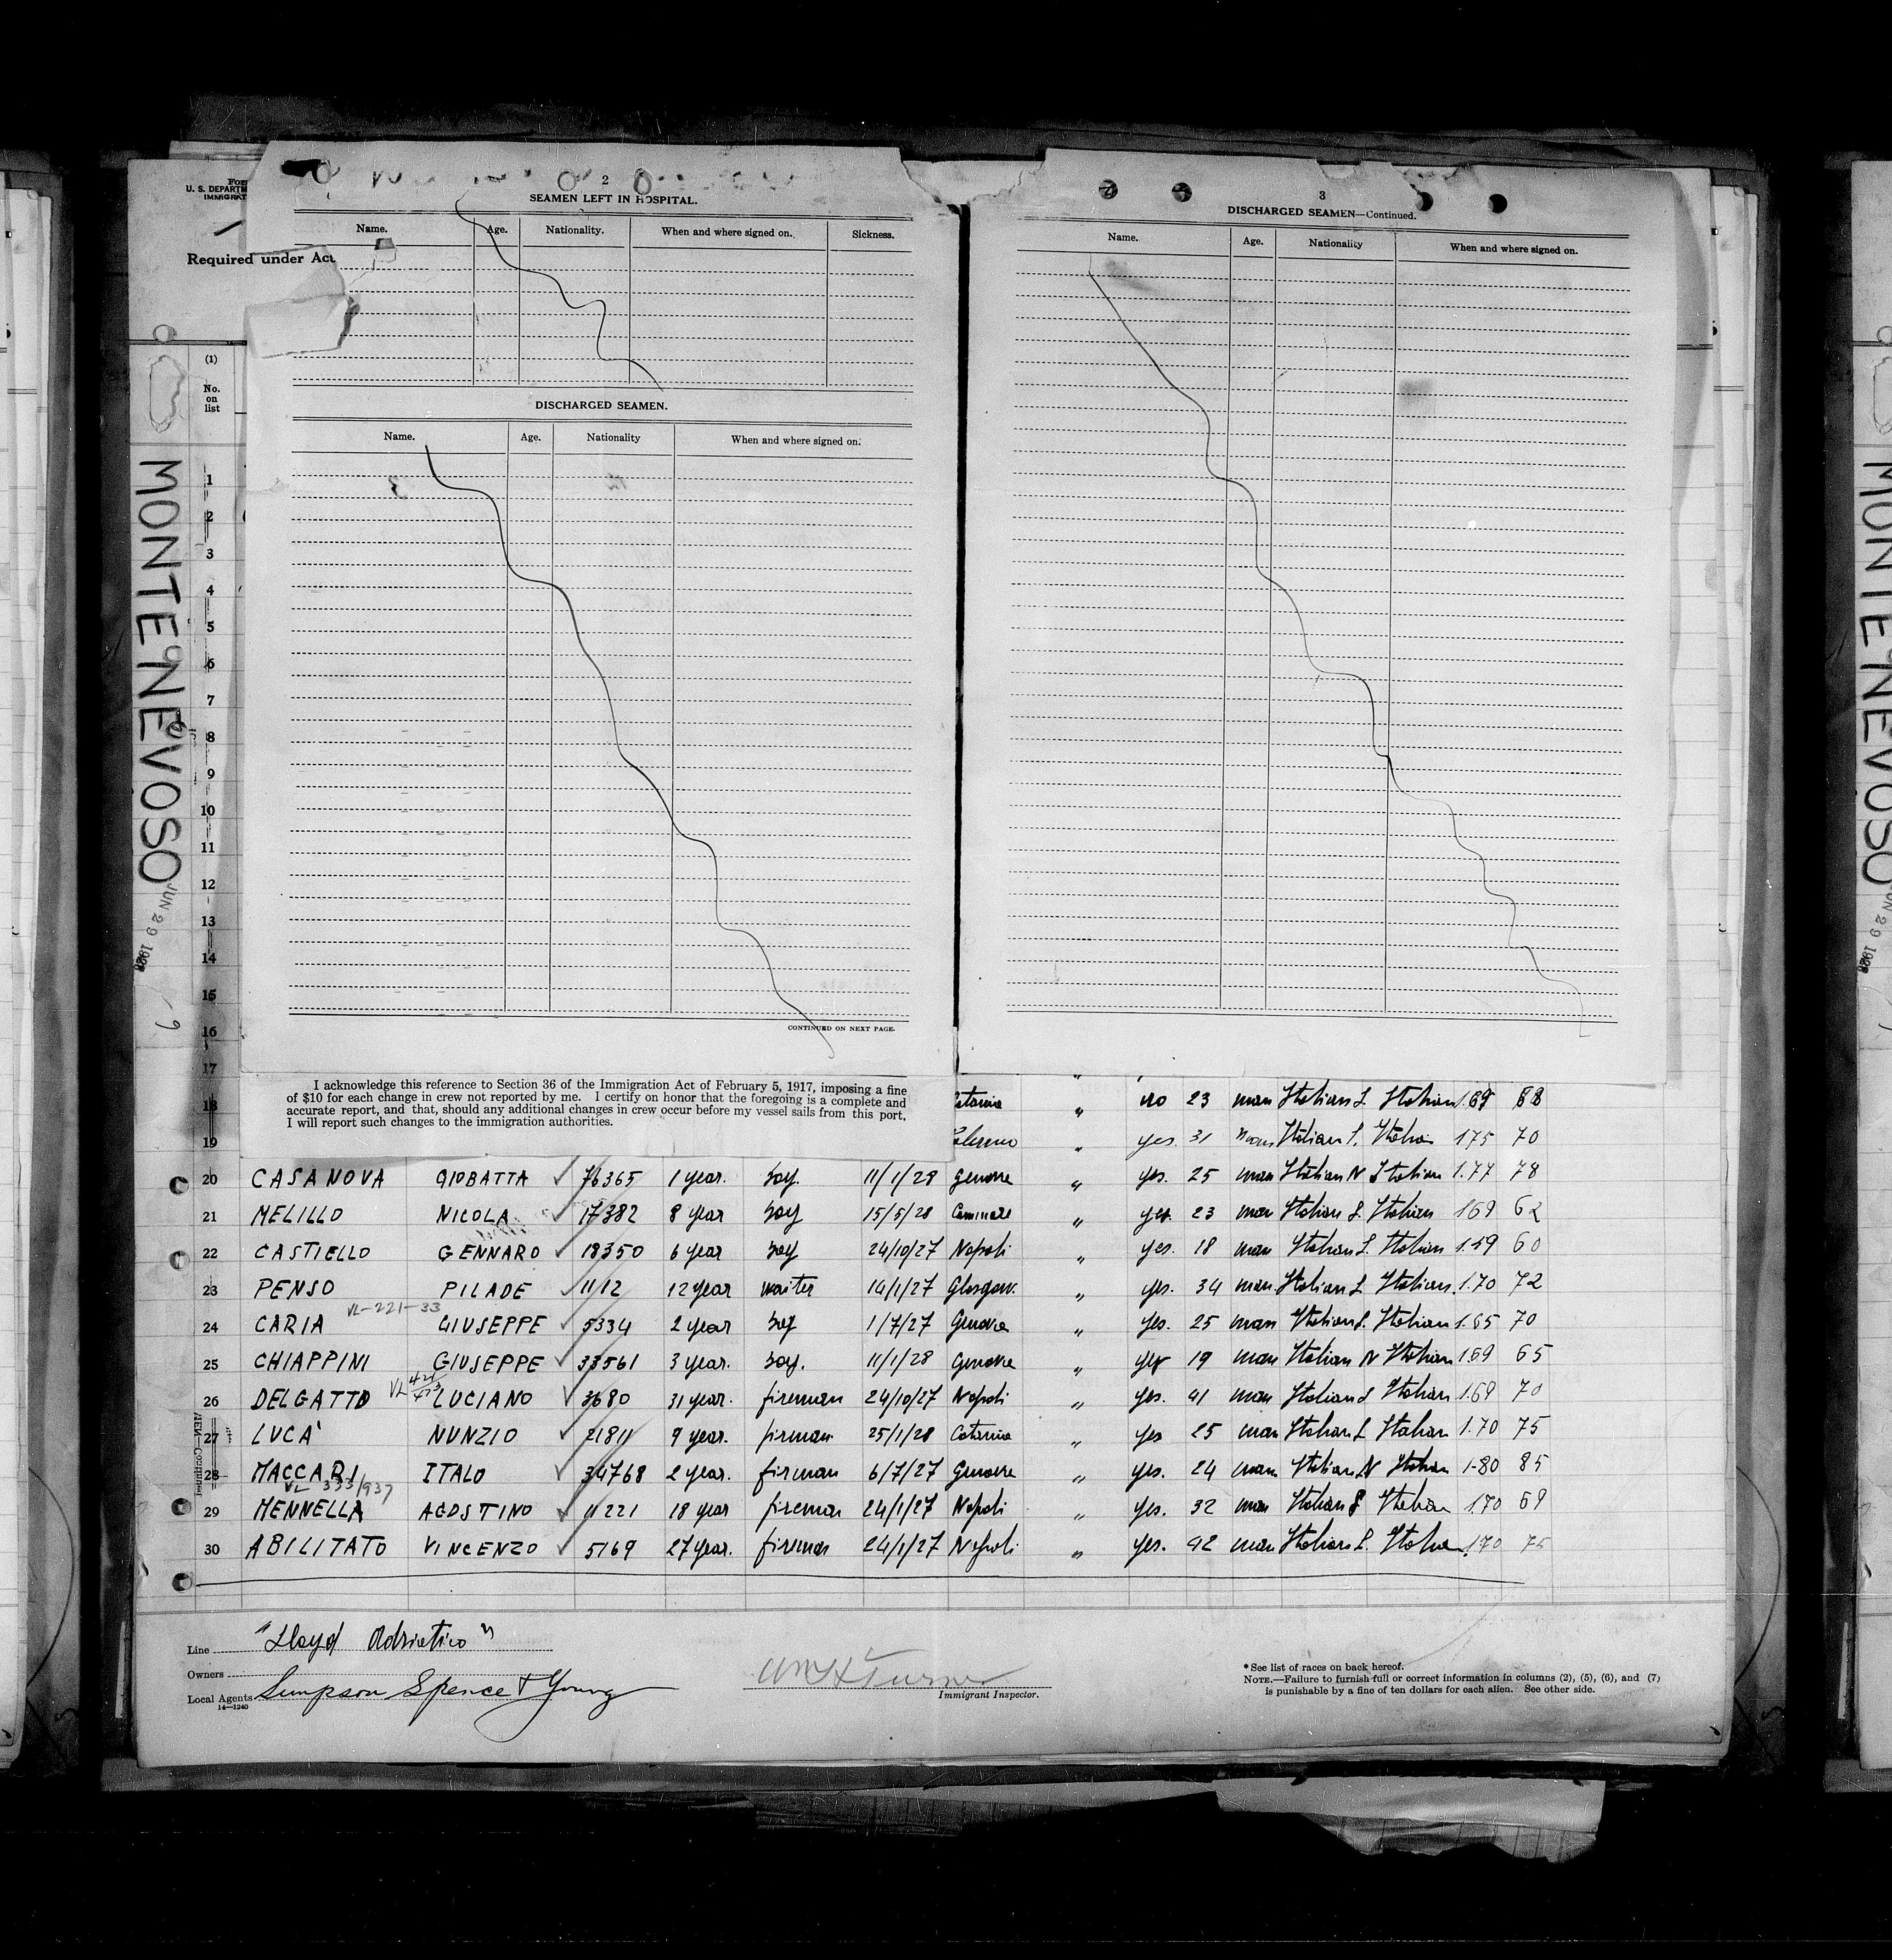 For
U. S. DEPARTM
IMMIGRAT
Required under Act
(1)
No.
on
list
MONTE NEVOSO
JUN 29 1928
2
SEAMEN LEFT IN HOSPITAL.
Name. Age. Nationality. When and where signed on. Sickness.
DISCHARGED SEAMEN.
Name. Age. Nationality When and where signed on.
CONTINUED ON NEXT PAGE.
I acknowledge this reference to Section 36 of the Immigration Act of February 5, 1917, imposing a fine
of $10 for each change in crew not reported by me. I certify on honor that the foregoing is a complete and
accurate report, and that, should any additional changes in crew occur before my vessel sails from this port,
I will report such changes to the immigration authorities.
3
DISCHARGED SEAMEN—Continued.
Name. Age. Nationality When and where signed on.
1
2
3
4
5
6
7
8
9
10
11
12
13
14
15
16
17
18 " no 23 man Italian S. Italian 68
19 " yes. 31 Italian S. 175 70
20 CASANOVA GIOBATTA 76365 1 year. boy. 11/1/28 Genova " yes. 25 man Italian N Italian 1.77 78
21 MELILLO NICOLA 17382 8 year boy 15/5/28 " yes. 23 man Italian S. Italian 169 62
22 CASTIELLO GENNARO 18350 6 year boy 24/10/27 Napoli " yes. 18 man Italian S. Italian 1.59 60
23 PENSO PILADE 1112 12 year waiter 14/1/27 Glasgow. " yes. 34 man Italian S Italian. 1.70 72
VL-221-33
24 CARIA GIUSEPPE 5334 2 year boy 1/7/27 Genova " yes. 25 man Italian S. Italian 1.65 70
25 CHIAPPINI GIUSEPPE 33561 3 year. boy. 11/1/28 Genova " yes 19 man Italian N Italian 1.69 65
26 DELGATTO LUCIANO 3680 31 year. fireman 24/10/27 Napoli " yes. 41 man Italian S Italian 1.69 70
27 LUCA' NUNZIO 21811 9 year. fireman 25/1/28 Catania " yes 25 man Italian S Italian 1.70 75
28 MACCARI ITALO 34768 2 year. fireman 6/7/27 Genova " yes. 24 man Italian N Italian 1-80 85
VL 333/937
29 MENNELLA AGOSTINO 11221 18 year fireman 24/1/27 Napoli " yes. 32 man Italian S Italian 1.70 69
30 ABILITATO VINCENZO 5169 27 year. fireman 24/1/27 Napoli " yes. 42 man Italian S. Italian 1.70 75
Line "Lloyd Adriatico"
Owners
Local Agents Simpson Spence & Young
14—1240
Wm H Turner
Immigrant Inspector.
* See list of races on back hereof.
NOTE.—Failure to furnish full or correct information in columns (2), (5), (6), and (7)
is punishable by a fine of ten dollars for each alien. See other side.
MONTE NEVOSO